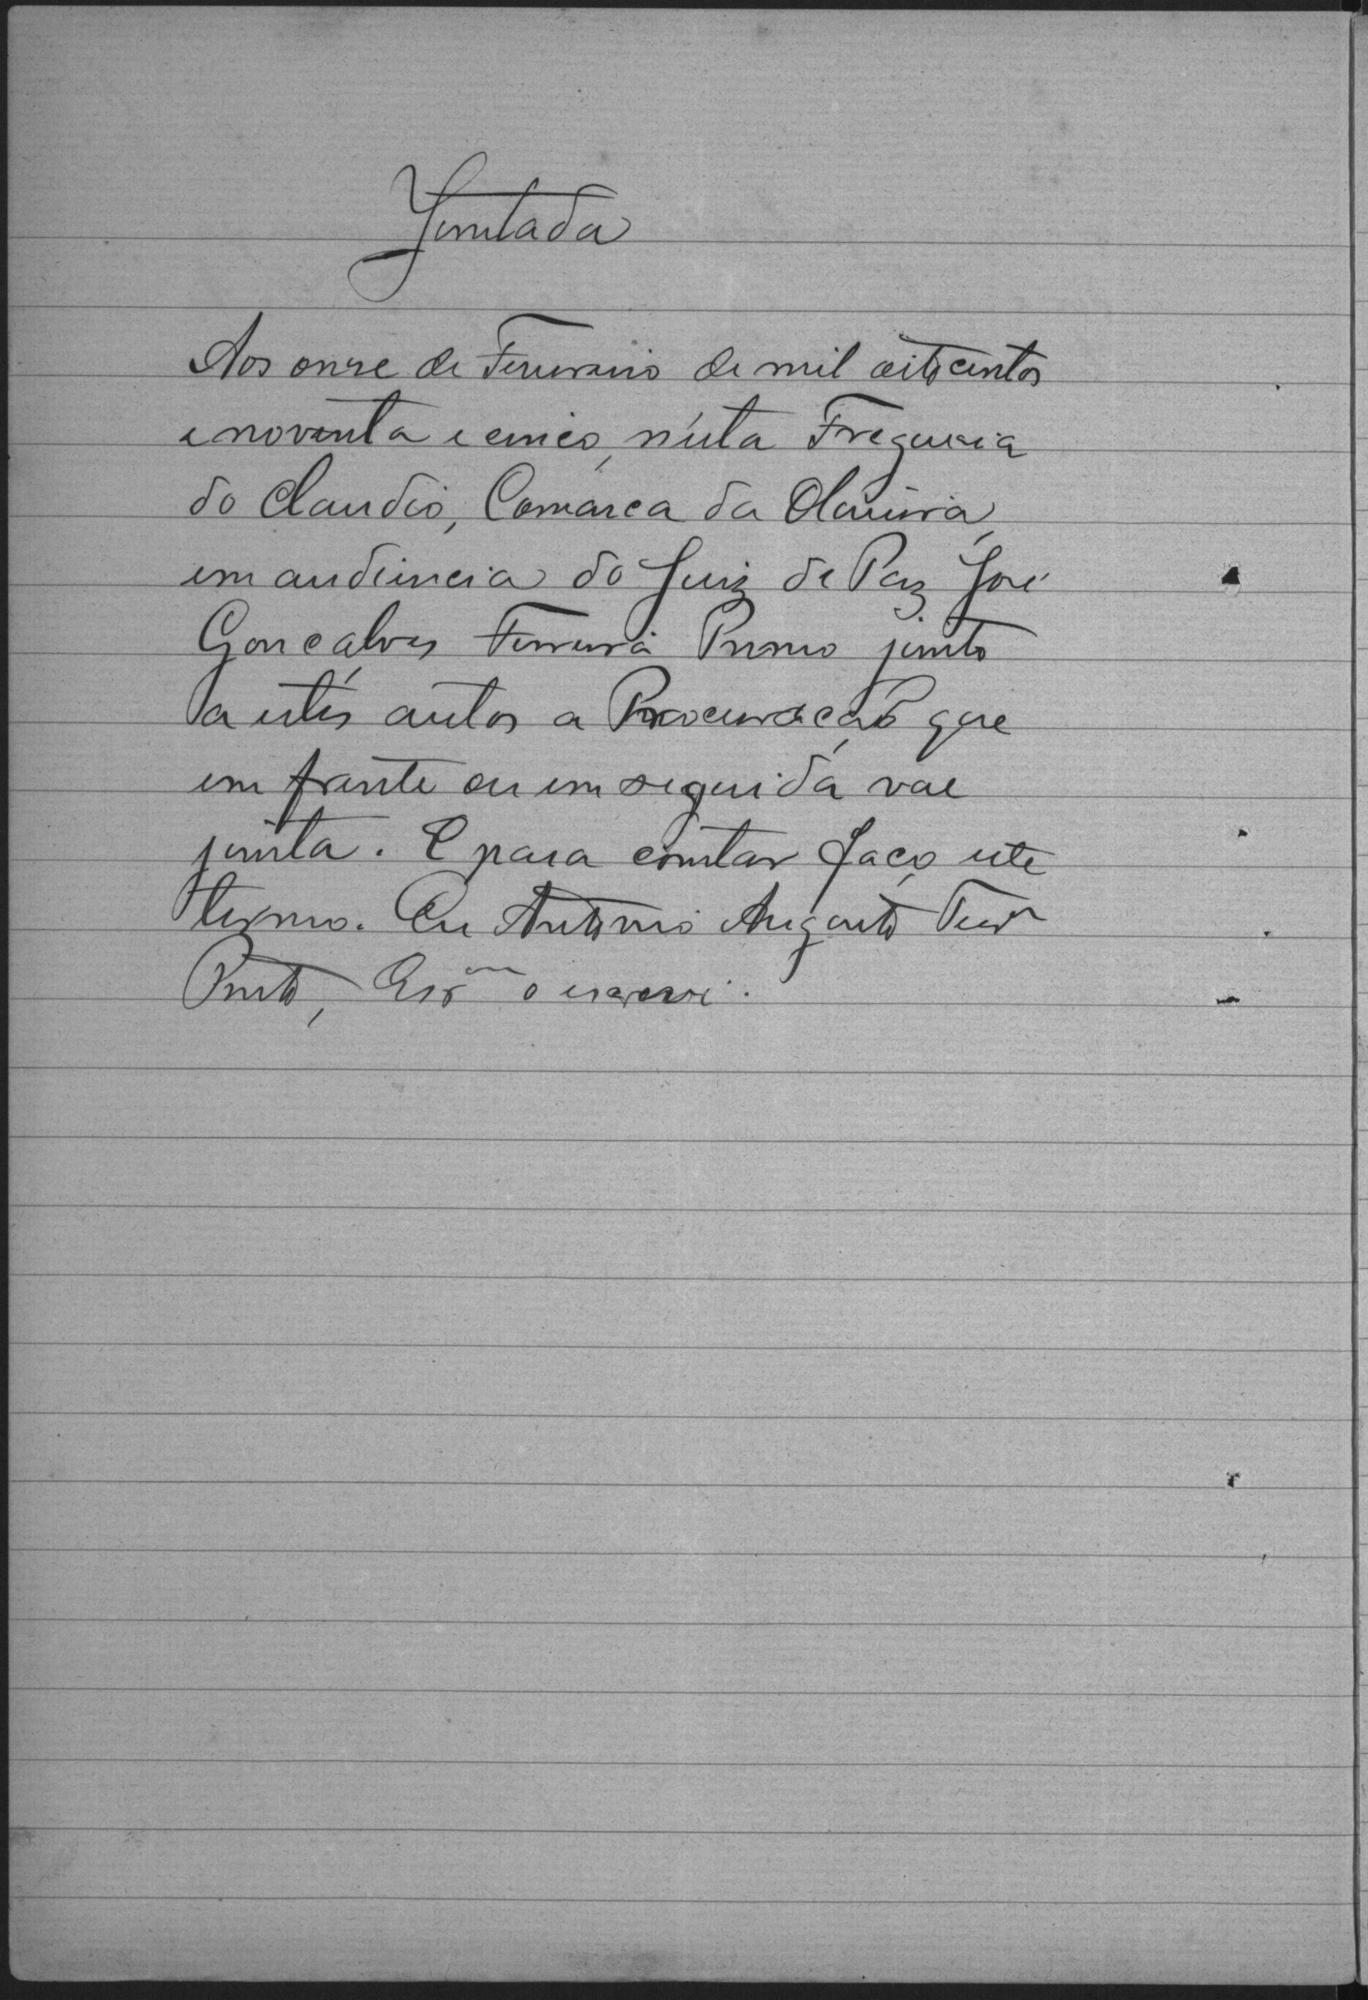 Juntada
Aos onze de Fevereiro de mil oitocentos
e noventa e cinco, n'esta Freguesia
do Claudio, Comarca da Oliveira,
em audiencia do Juiz de Paz José
Gonçalves Ferreira Primo junto
a estes autos a Procuração que
em frente ou em seguida vae
junta. E para constar faço este
termo. Eu Antonio Augusto Ferrª
Pinto, Esᵐ o escrevi.